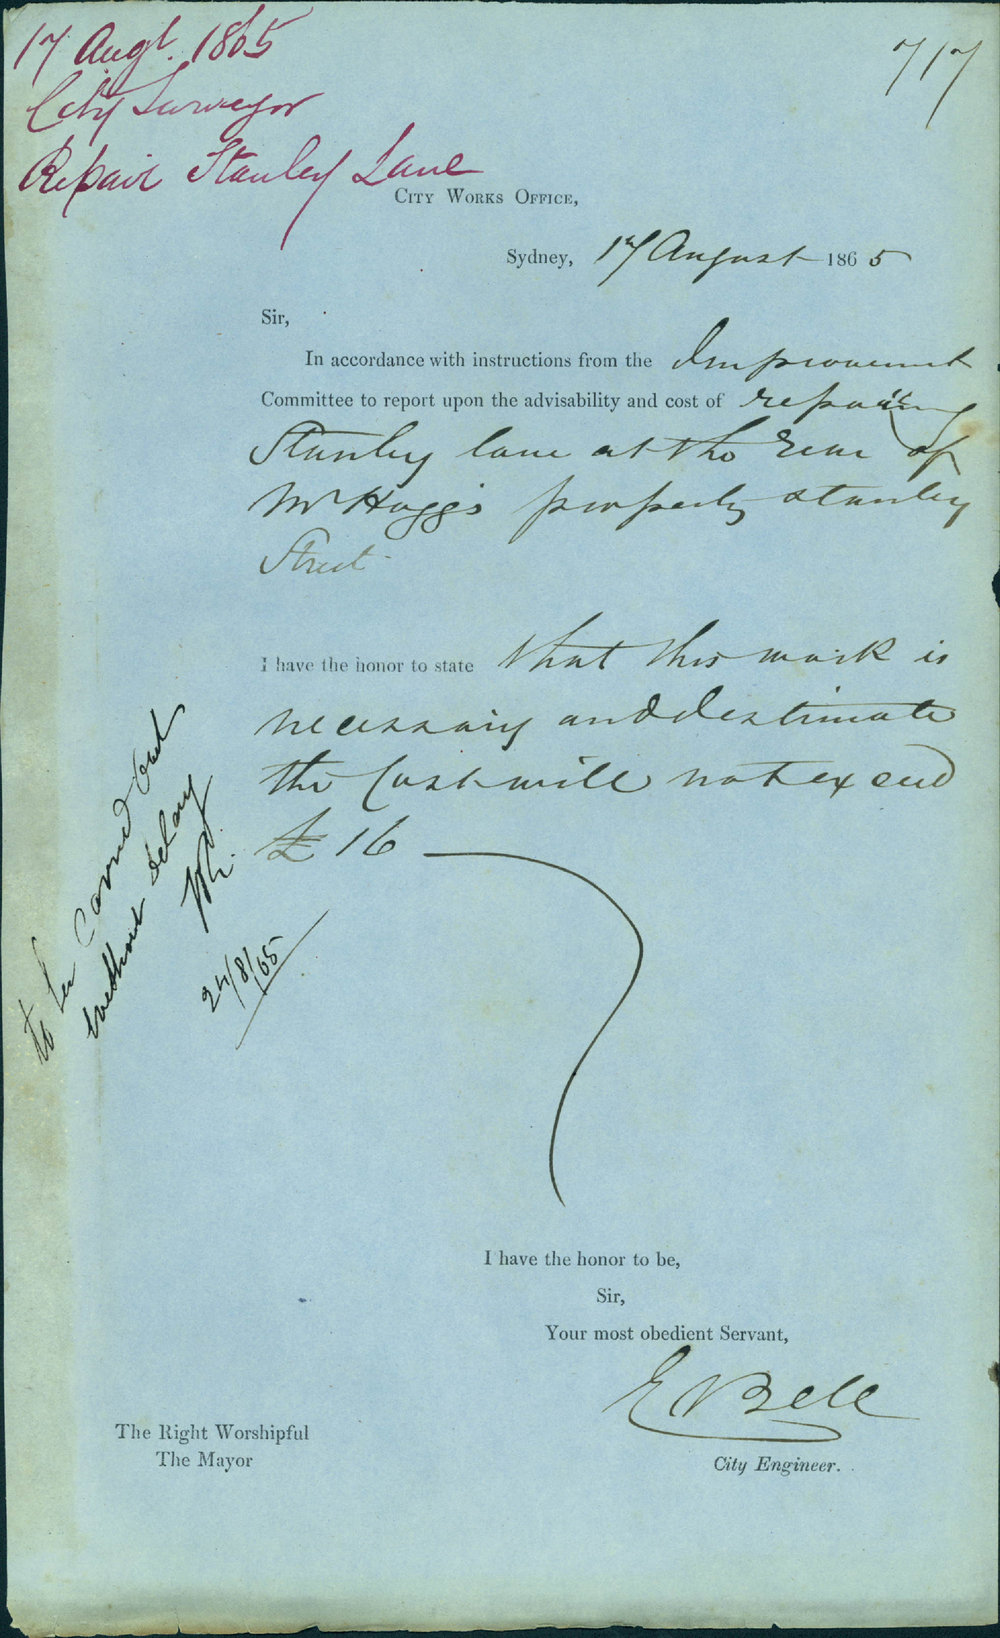 17 Augt. 1865
717
City Surveyor
Repair Stanley Lane
City Works Office,
Sydney, 17 August 1865
Sir,
In accordance with instructions from the Improvement
Committee to report upon the advisability and cost of repairing
Stanley lane at the rear of
Mr Hogg's property Stanley
Street
I have the honor to state that this work is
necessary and I estimate
the Cost will not exceed
£16
to be carried out
without delay
24/8/65
I have the honor to be,
Sir,
Your most obedient Servant,
E Bell
The Right Worshipful
The Mayor
City Engineer.